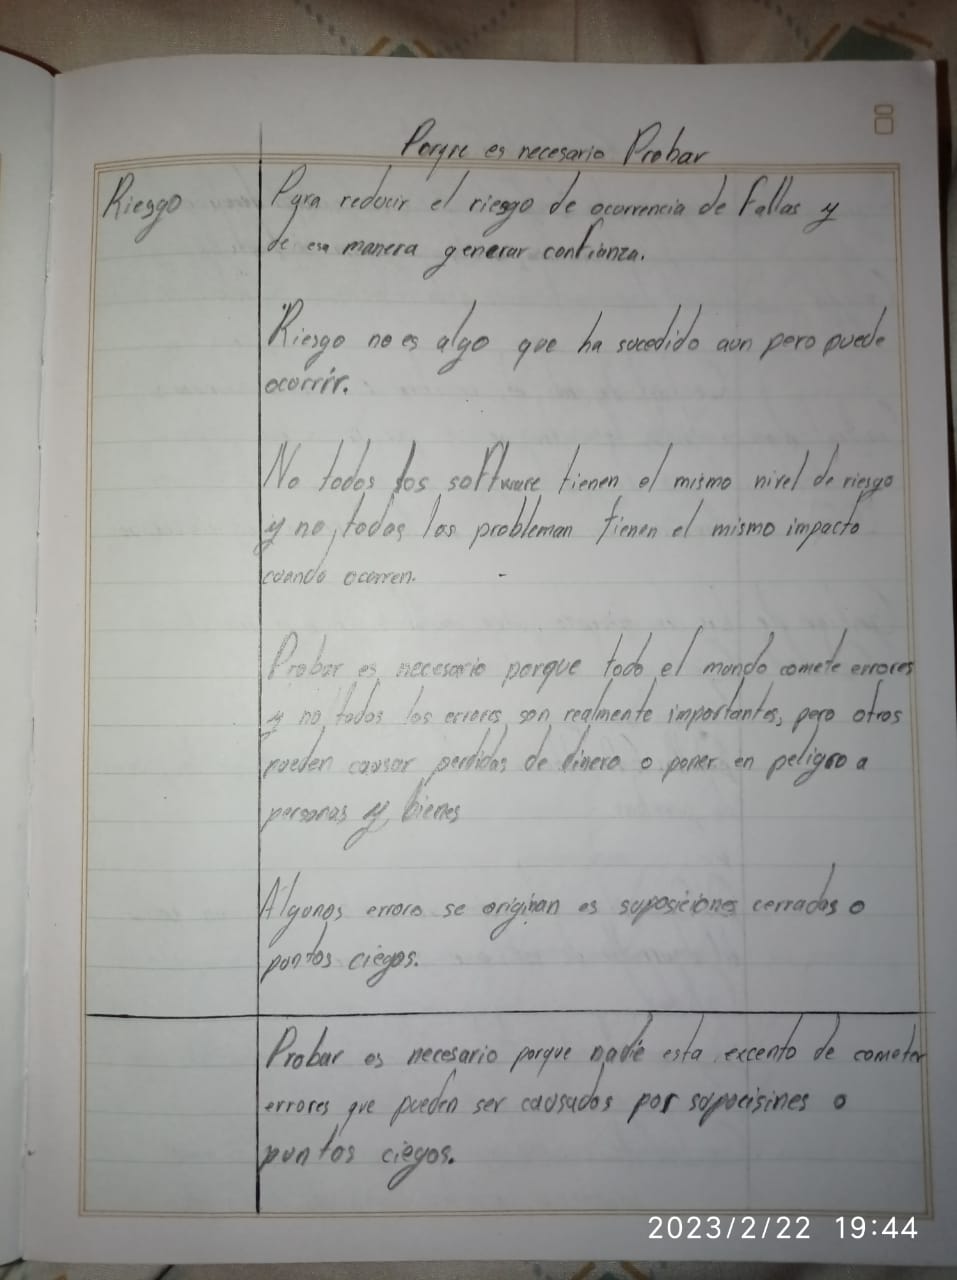 Porque es necesario Probar
Riesgo
Para reducir el riesgo de ocurrencia de fallas y
de esa manera generar confianza.
Riesgo no es algo que ha sucedido aun pero puede
ocurrir.
No todos los software tienen el mismo nivel de riesgo
y no todas los probleman tienen el mismo impacto
cuando ocurren.
Probar es necesario porque todo el mundo comete errores
y no todos los errores son realmente importantes, pero otros
pueden causar perdidas de dinero o poner en peligro a
personas y bienes
Algunos errors se originan es suposiciones cerradas o
puntos ciegos.
Probar es necesario porque nadie esta excento de cometer
errores que pueden ser causados por supocisines o
puntos ciegos.
2023/2/22 19:44